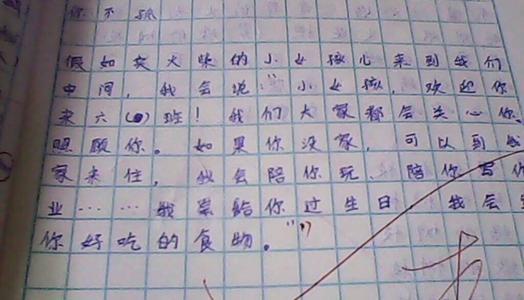 你不孤
假如卖火柴的小女孩儿来到我们
中间，我会说："小女孩，欢迎你
来六（）班！我们大家都会关心你、
照顾你。如果你没家，可以到我
家来住，我会陪你玩、陪你写作
业……我要给你过生日，我会
你好吃的食物。"